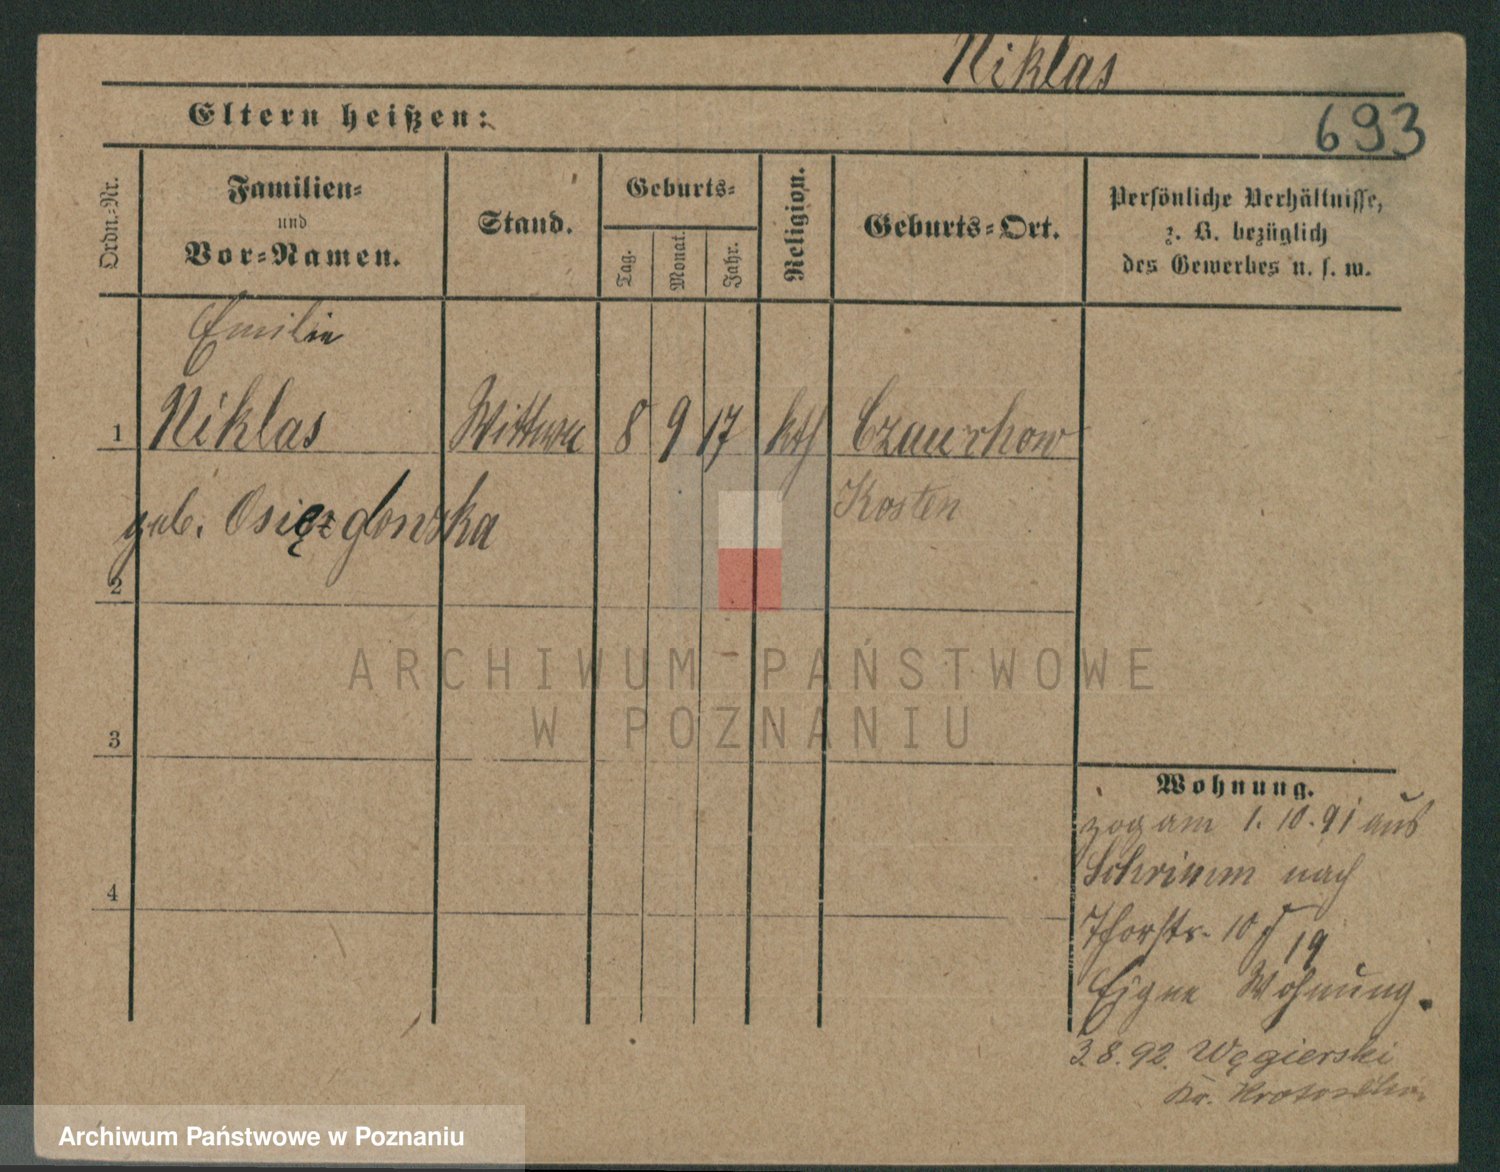 Niklas
693
Eltern heißen:
Ordn.-Nr.
Familien-
und
Vor-Namen.
Stand.
Geburts-
Tag.
Monat.
Jahr.
Religion.
Geburts-Ort.
Persönliche Verhältnisse,
z. B. bezüglich
des Gewerbes u. s. w.
Emilie
1 Niklas Wittwe 8 9 17 kth
Kosten
geb.
2
3
4
Wohnung.
zog am 1.10.91 aus
Schrimm nach
Thorstr. 10
19
Eigne Wohnung.
3.8.92. Węgierski
Kr. Krotoschin
ARCHIWUM PAŃSTWOWE
W POZNANIU
Archiwum Państwowe w Poznaniu